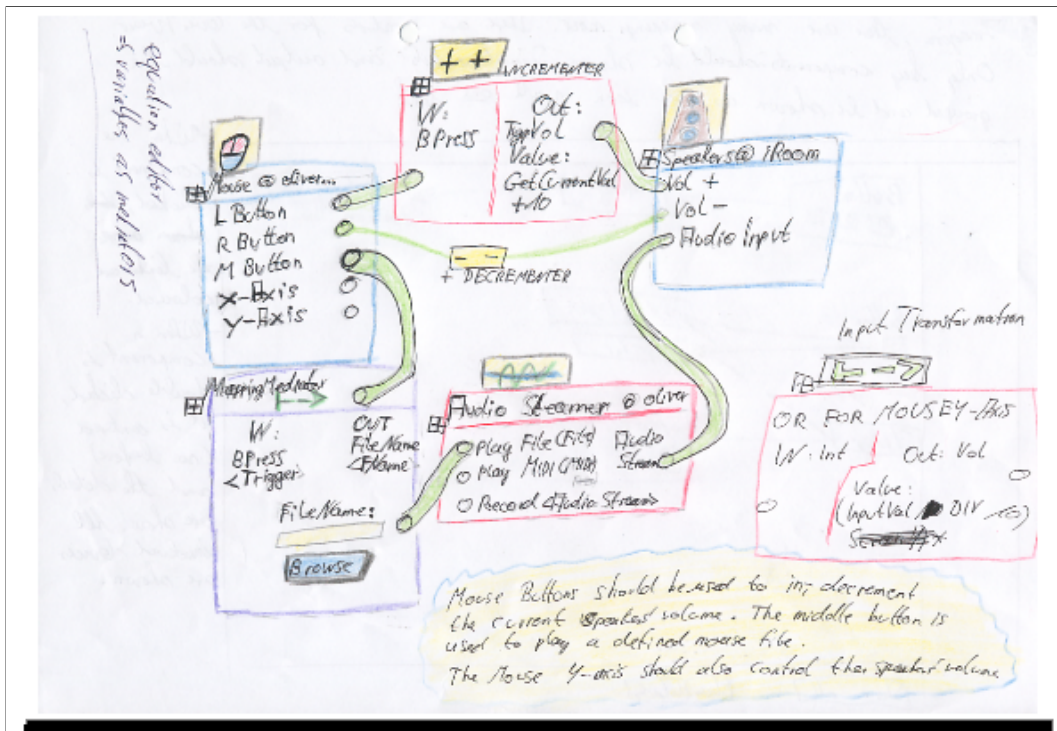 equation editor
=> variables as mediators
++ INCREMENTER
W:
BPress
Out:
Typ Vol
Value:
GetCurrentVol
+10
Mouse @ oliver...
L Button
R Button
M Button
X-Axis
Y-Axis
Speakers @ iRoom
Vol +
Vol -
Audio Input
-- 
+ DECREMENTER
MappingMediator
W:
BPress
<Trigger>
OUT
FileName
<FName>
FileName:
Browse
Audio Streamer @ oliver
Play File (File)
Play MIDI (Midi)
Record <Audio Stream>
Audio
Stream
Input Transformation
OR FOR MOUSEY-Axis
W: Int
Out: Vol
Value:
(InputVal DIV
Mouse Buttons should be used to in; decrement
the current Speakers volume. The middle button is
used to play a defined mouse file.
The Mouse Y-axis should also control the speakers volume